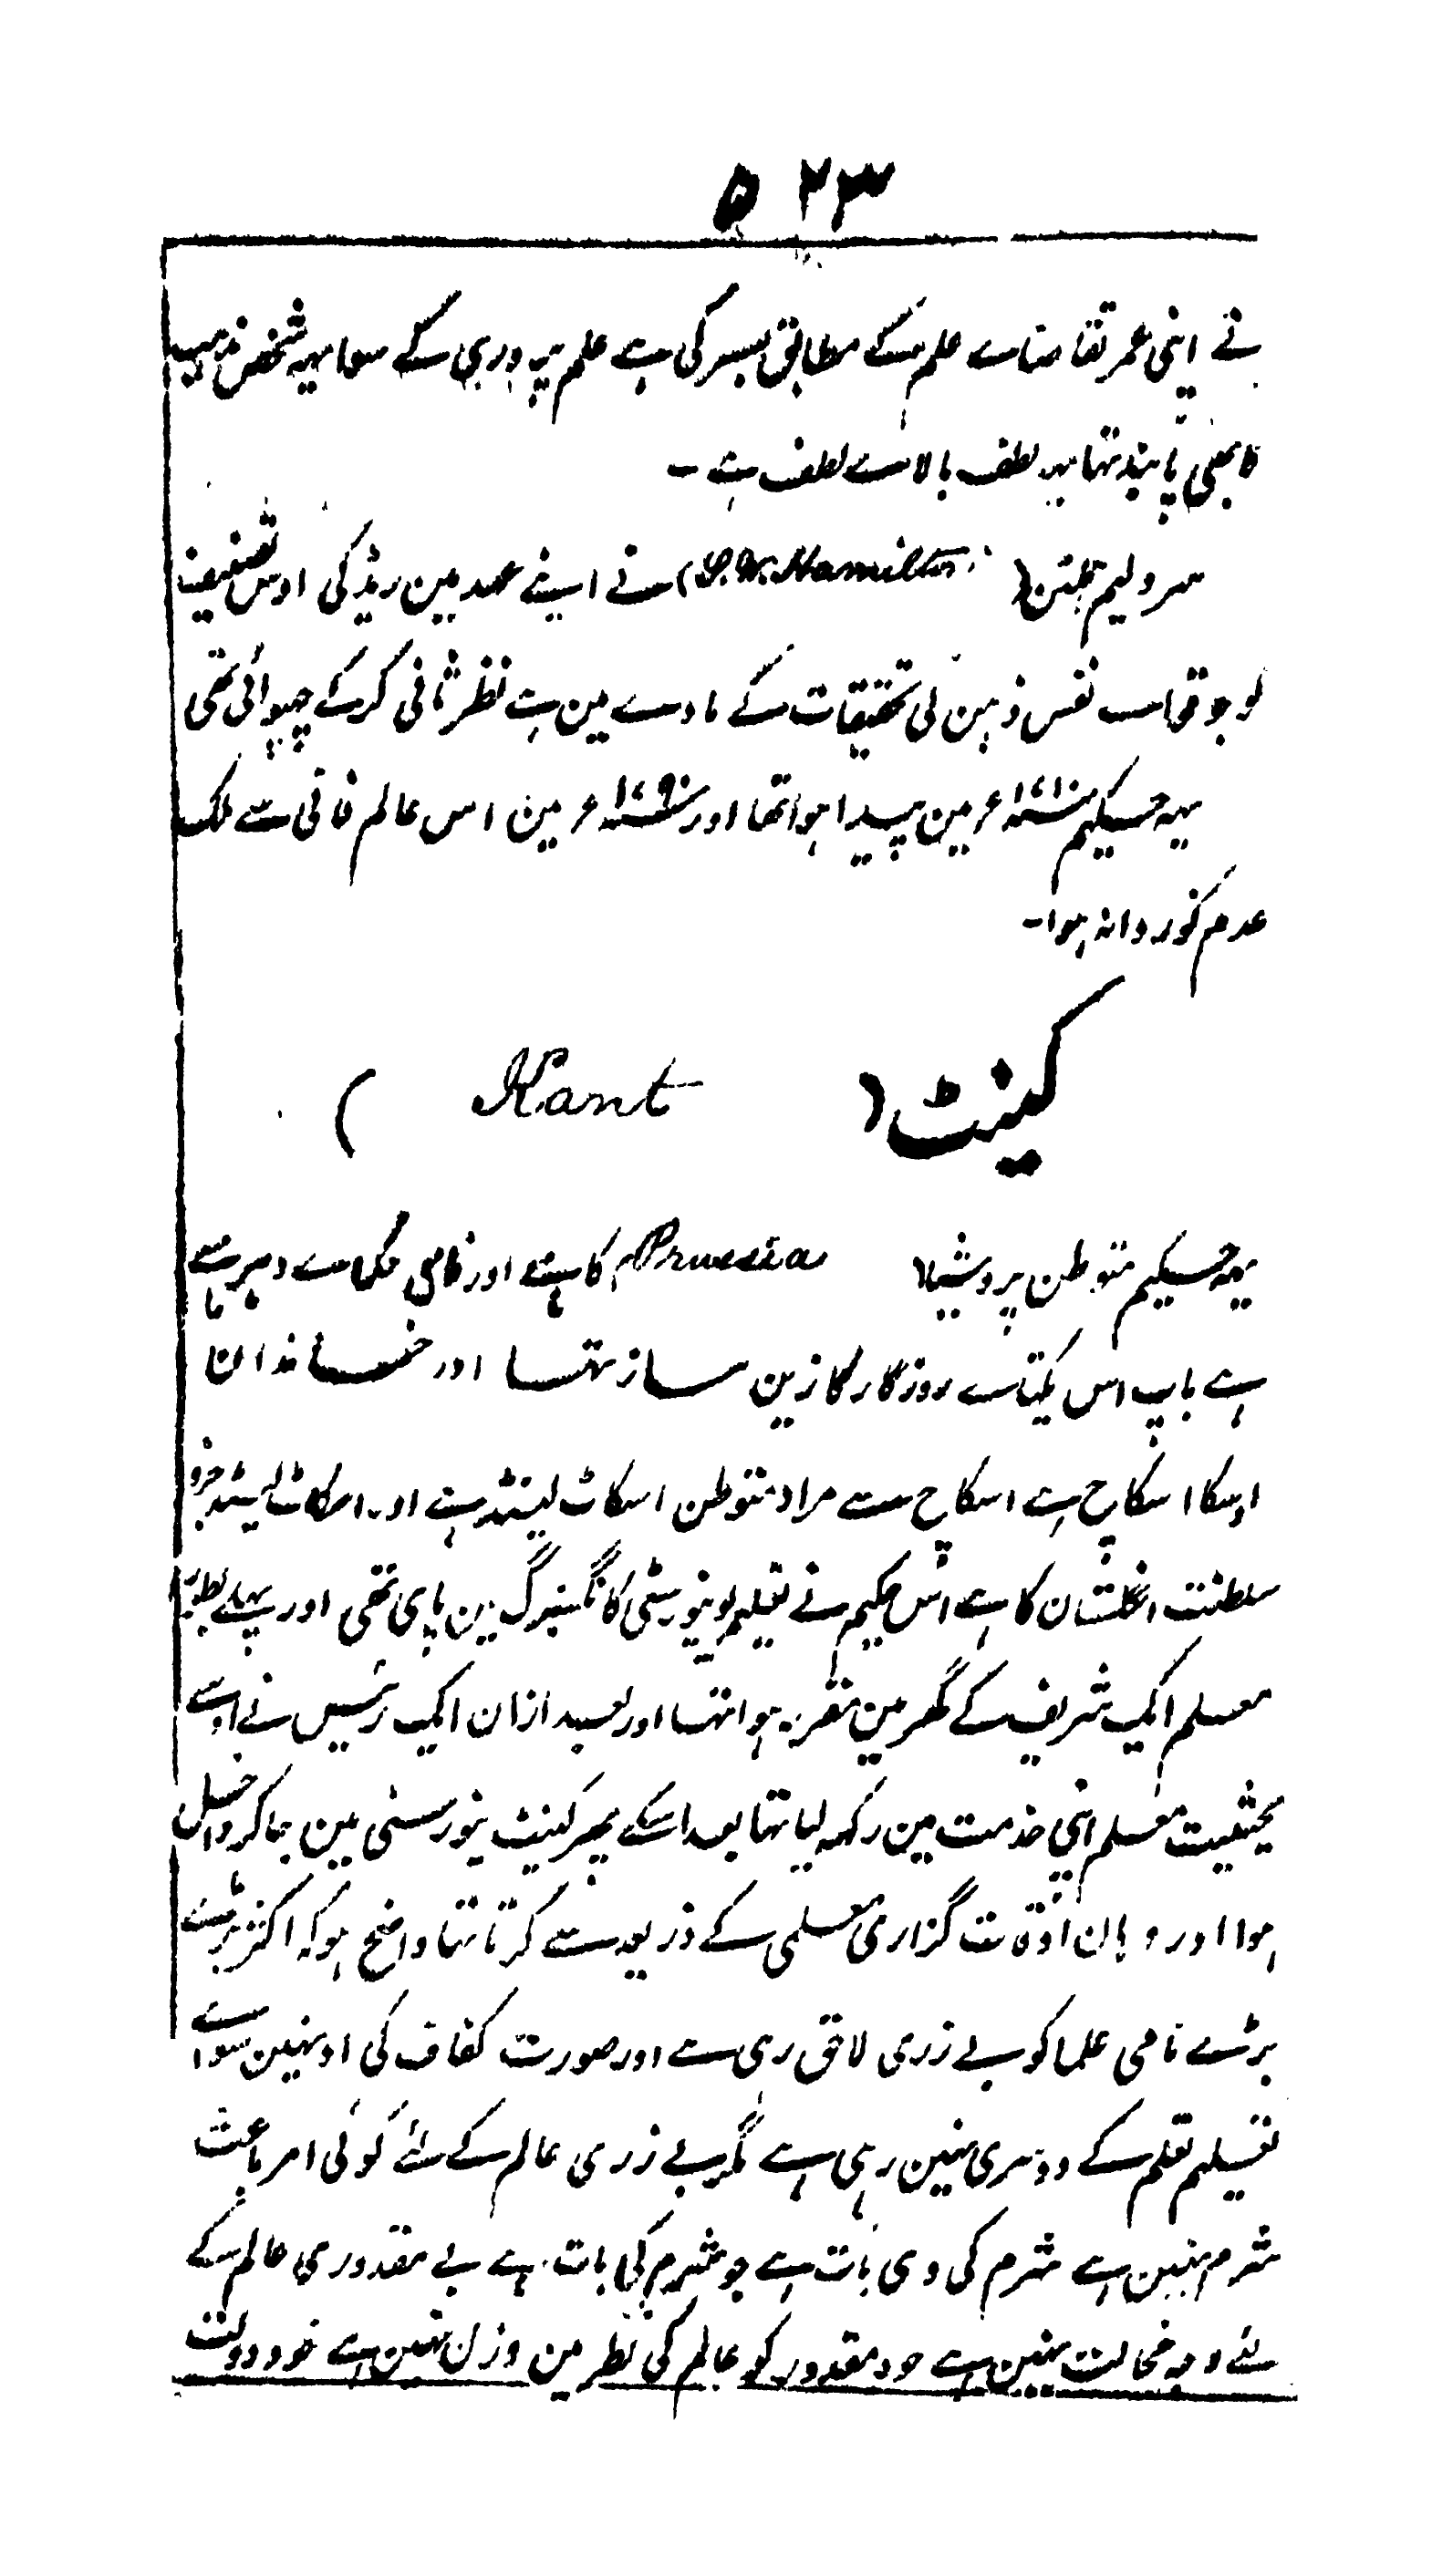 ۵۲۳
نے اپنی عمر تقاضاے علم کے مطابق بسر کی ہے علم پروری کے سوا یہہ شخص مذہب
کا بھی پابند تھا یہہ لطف بالاے لطف ہے -
سر ولیم ہملٹن (S. W. Hamilton) نے اپنے عہد مین ریڈ کی اوس تصنیف
کو جو قواے نفس ذہن کی تحقیقات کے مادے مین ہے نظر ثانی کرکے چھپوائی تھی
یہہ حکیم سنہ ۱۷۱۰ء مین پیدا ہوا تھا اور سنہ ۱۷۹۶ء مین اس عالم فانی سے ملک
عدم کو روانہ ہوا -
کینٹ ( Kant )
یہہ حکیم متوطن پروشیا ( Prussia ) کا ہے اور نامی حکماے دہر سے
ہے باپ اس یکتاے روزگار کا زین ساز تھا اور خاندان
اوسکا اسکاچ ہے اسکاچ سے مراد متوطن اسکاٹ لینڈ ہے اور اسکاٹ لینڈ جزو
سلطنت انگلستان کا ہے اس حکیم نے تعلیم یونیورسٹی کانگسبرگ مین پای تھی اور پہلے بطور
معلم ایک شریف کے گھر مین مقرر ہوا تھا اور بعد ازان ایک رئیس نے اوسے
بحیثیت معلم اپنی خدمت مین رکھہ لیا تھا بعد اسکے پھر کینٹ یونورسٹی مین جا کر داخل
ہوا اور وہان اوقات گزاری معلمی کے ذریعہ سے کرتا تھا واضح ہو کہ اکثر بڑے
بڑے نامی علما کو بے زری لاحق رہی ہے اور صورت کفاف کی اونہین سواے
تعلیم تعلم کے دوسری نہین رہی ہے مگر بے زری عالم کے لئے کوئی امر باعث
شرم نہین ہے شرم کی وہی بات ہے جو شرم کی بات ہے بے مقدوری عالم کے
لئے وجہ خجالت نہین ہے خود مقدور کو عالم کی نظر مین وزن نہین ہے خود دولت